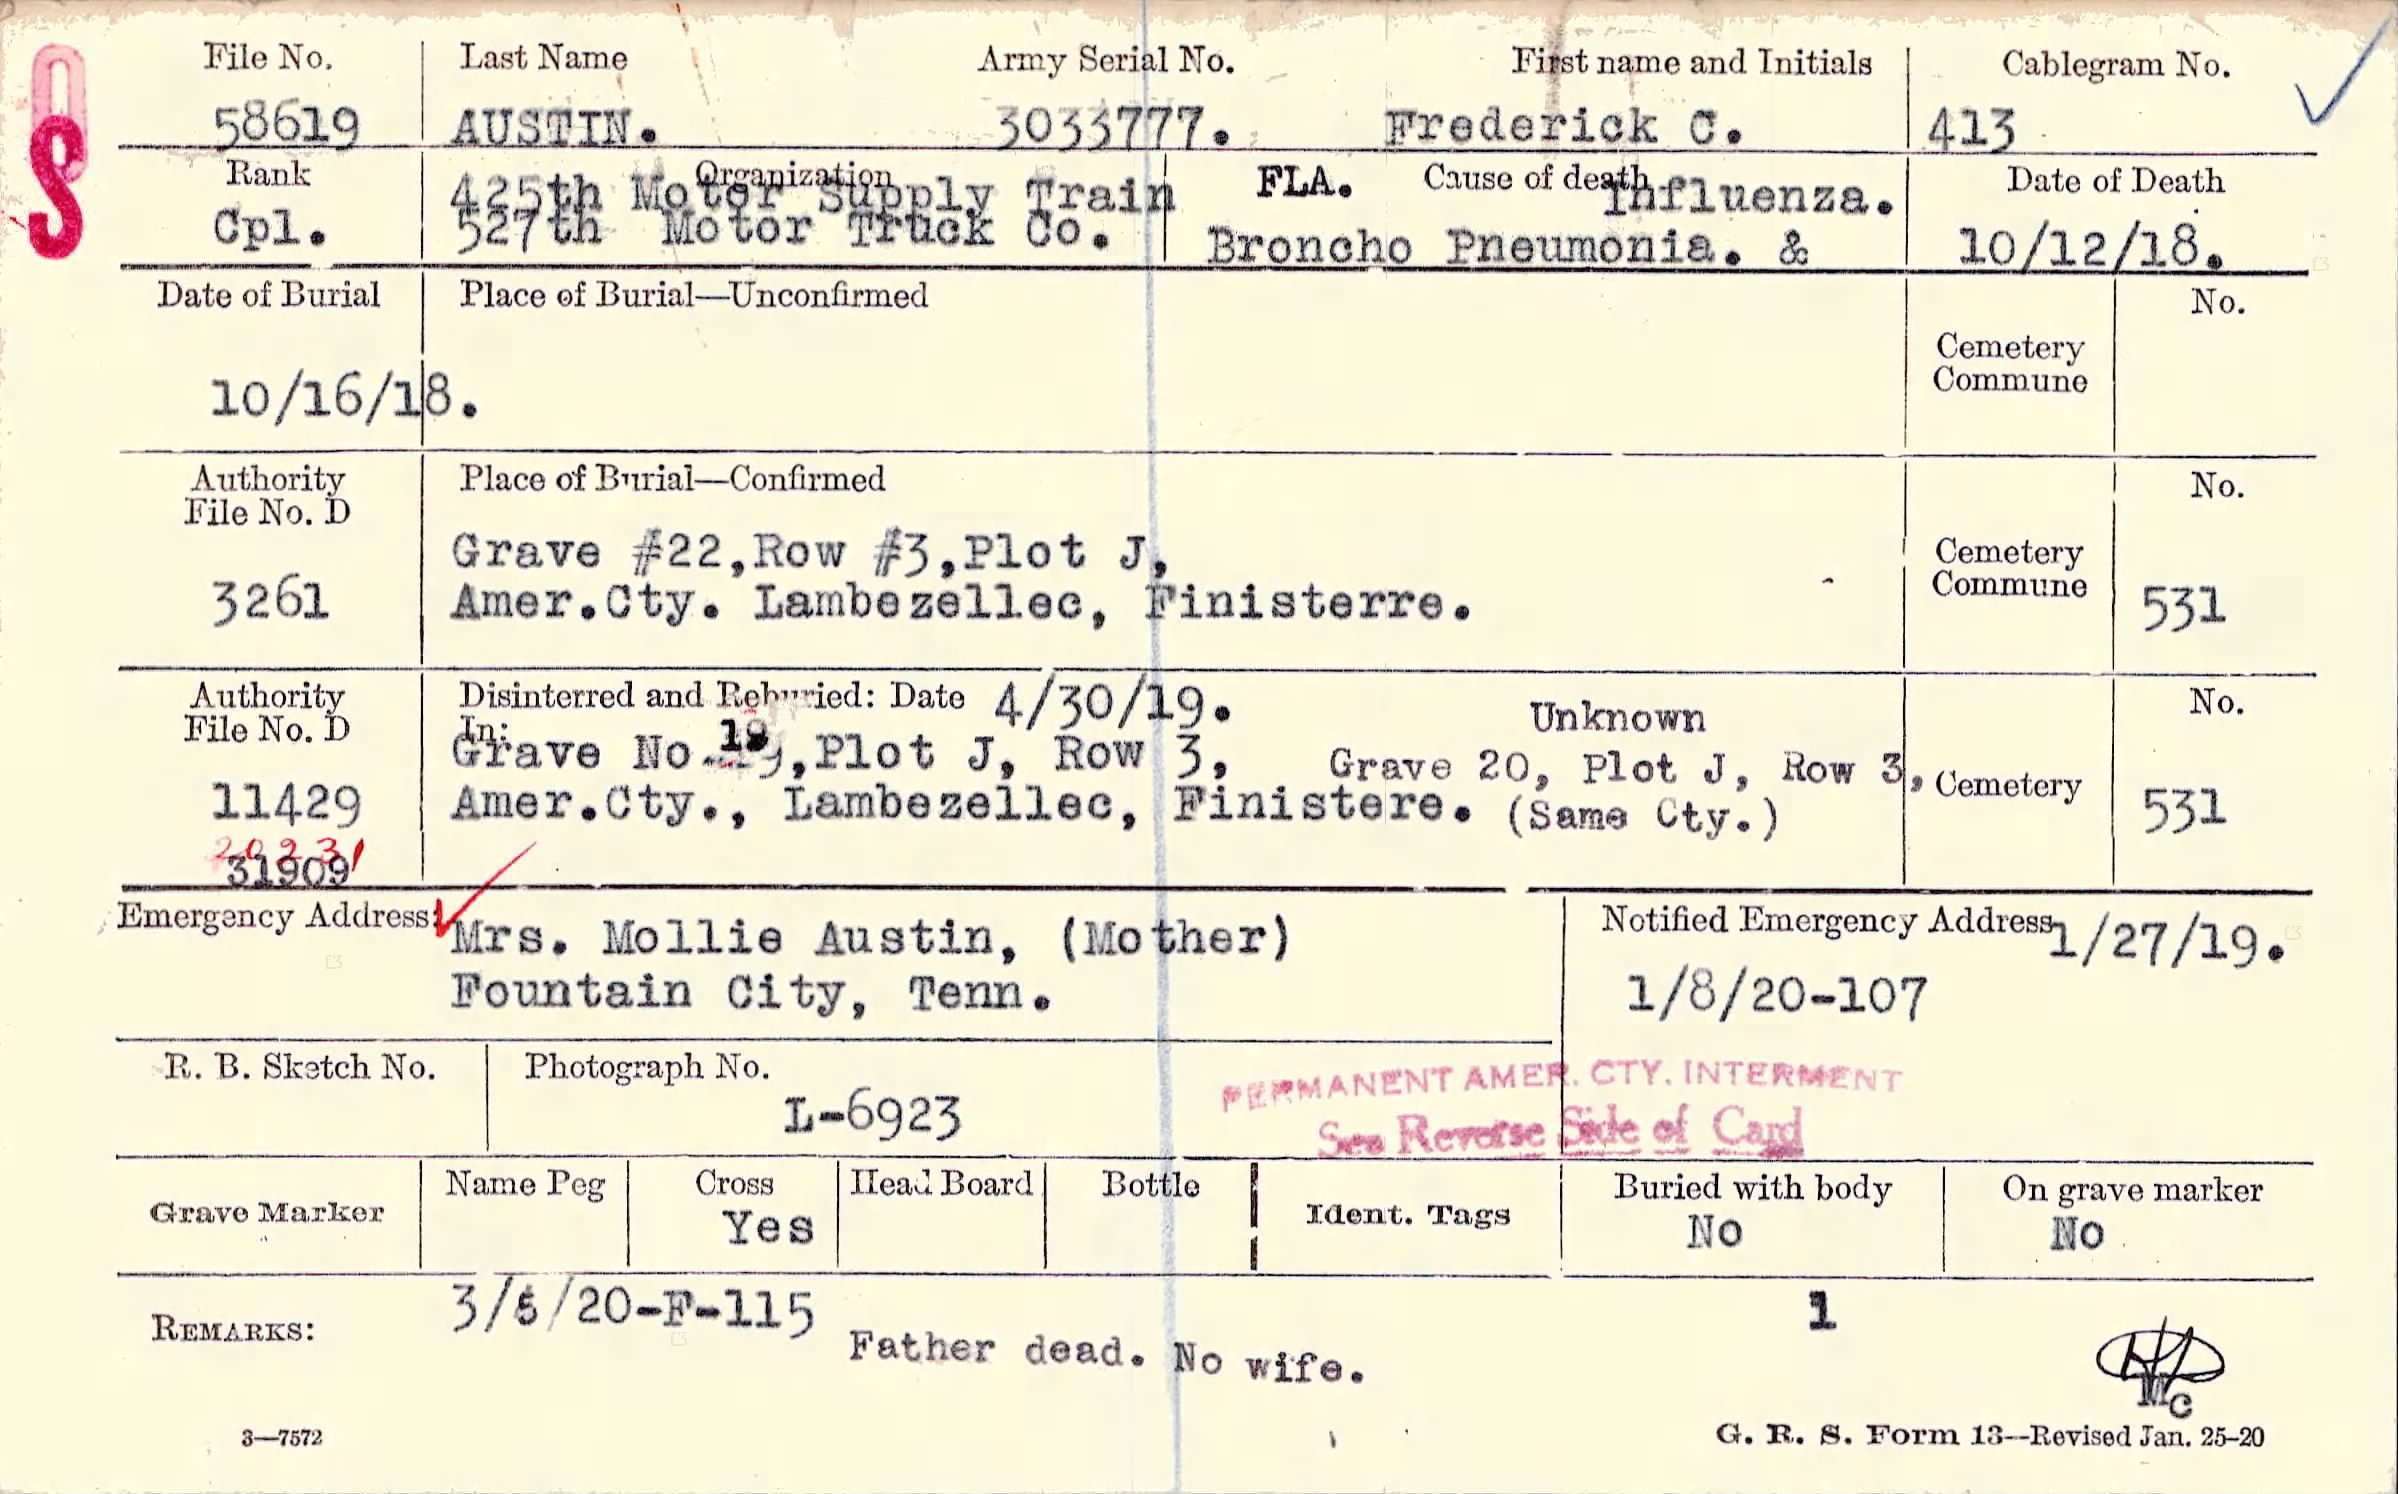 OS
File No. Last Name Army Serial No. First name and Initials Cablegram No.
58619 AUSTIN. 3033777. Frederick C. 413
Rank Organization FLA. Cause of death Date of Death
425th Motor Supply Train Influenza.
Cpl. 527th Motor Truck Co. Broncho Pneumonia. & 10/12/18.
Date of Burial Place of Burial—Unconfirmed No.
Cemetery
Commune
10/16/18.
Authority Place of Burial—Confirmed No.
File No. D
Grave #22,Row #3,Plot J, Cemetery
3261 Amer.Cty. Lambezellec, Finisterre. Commune 531
Authority Disinterred and Reburied: Date 4/30/19. Unknown No.
File No. D In:
Grave No. 19,Plot J, Row 3, Grave 20, Plot J, Row 3, Cemetery
11429 Amer.Cty., Lambezellec, Finistere. (Same Cty.) 531
20231
31909
Emergency Address: Mrs. Mollie Austin, (Mother) Notified Emergency Address 1/27/19.
Fountain City, Tenn. 1/8/20-107
R. B. Sketch No. Photograph No.
L-6923
PERMANENT AMER. CTY. INTERMENT
See Reverse Side of Card
Grave Marker Name Peg Cross Head Board Bottle Ident. Tags Buried with body On grave marker
Yes No No
REMARKS: 3/5/20-F-115 1
Father dead. No wife.
Mc
3—7572 G. R. S. Form 13—Revised Jan. 25-20